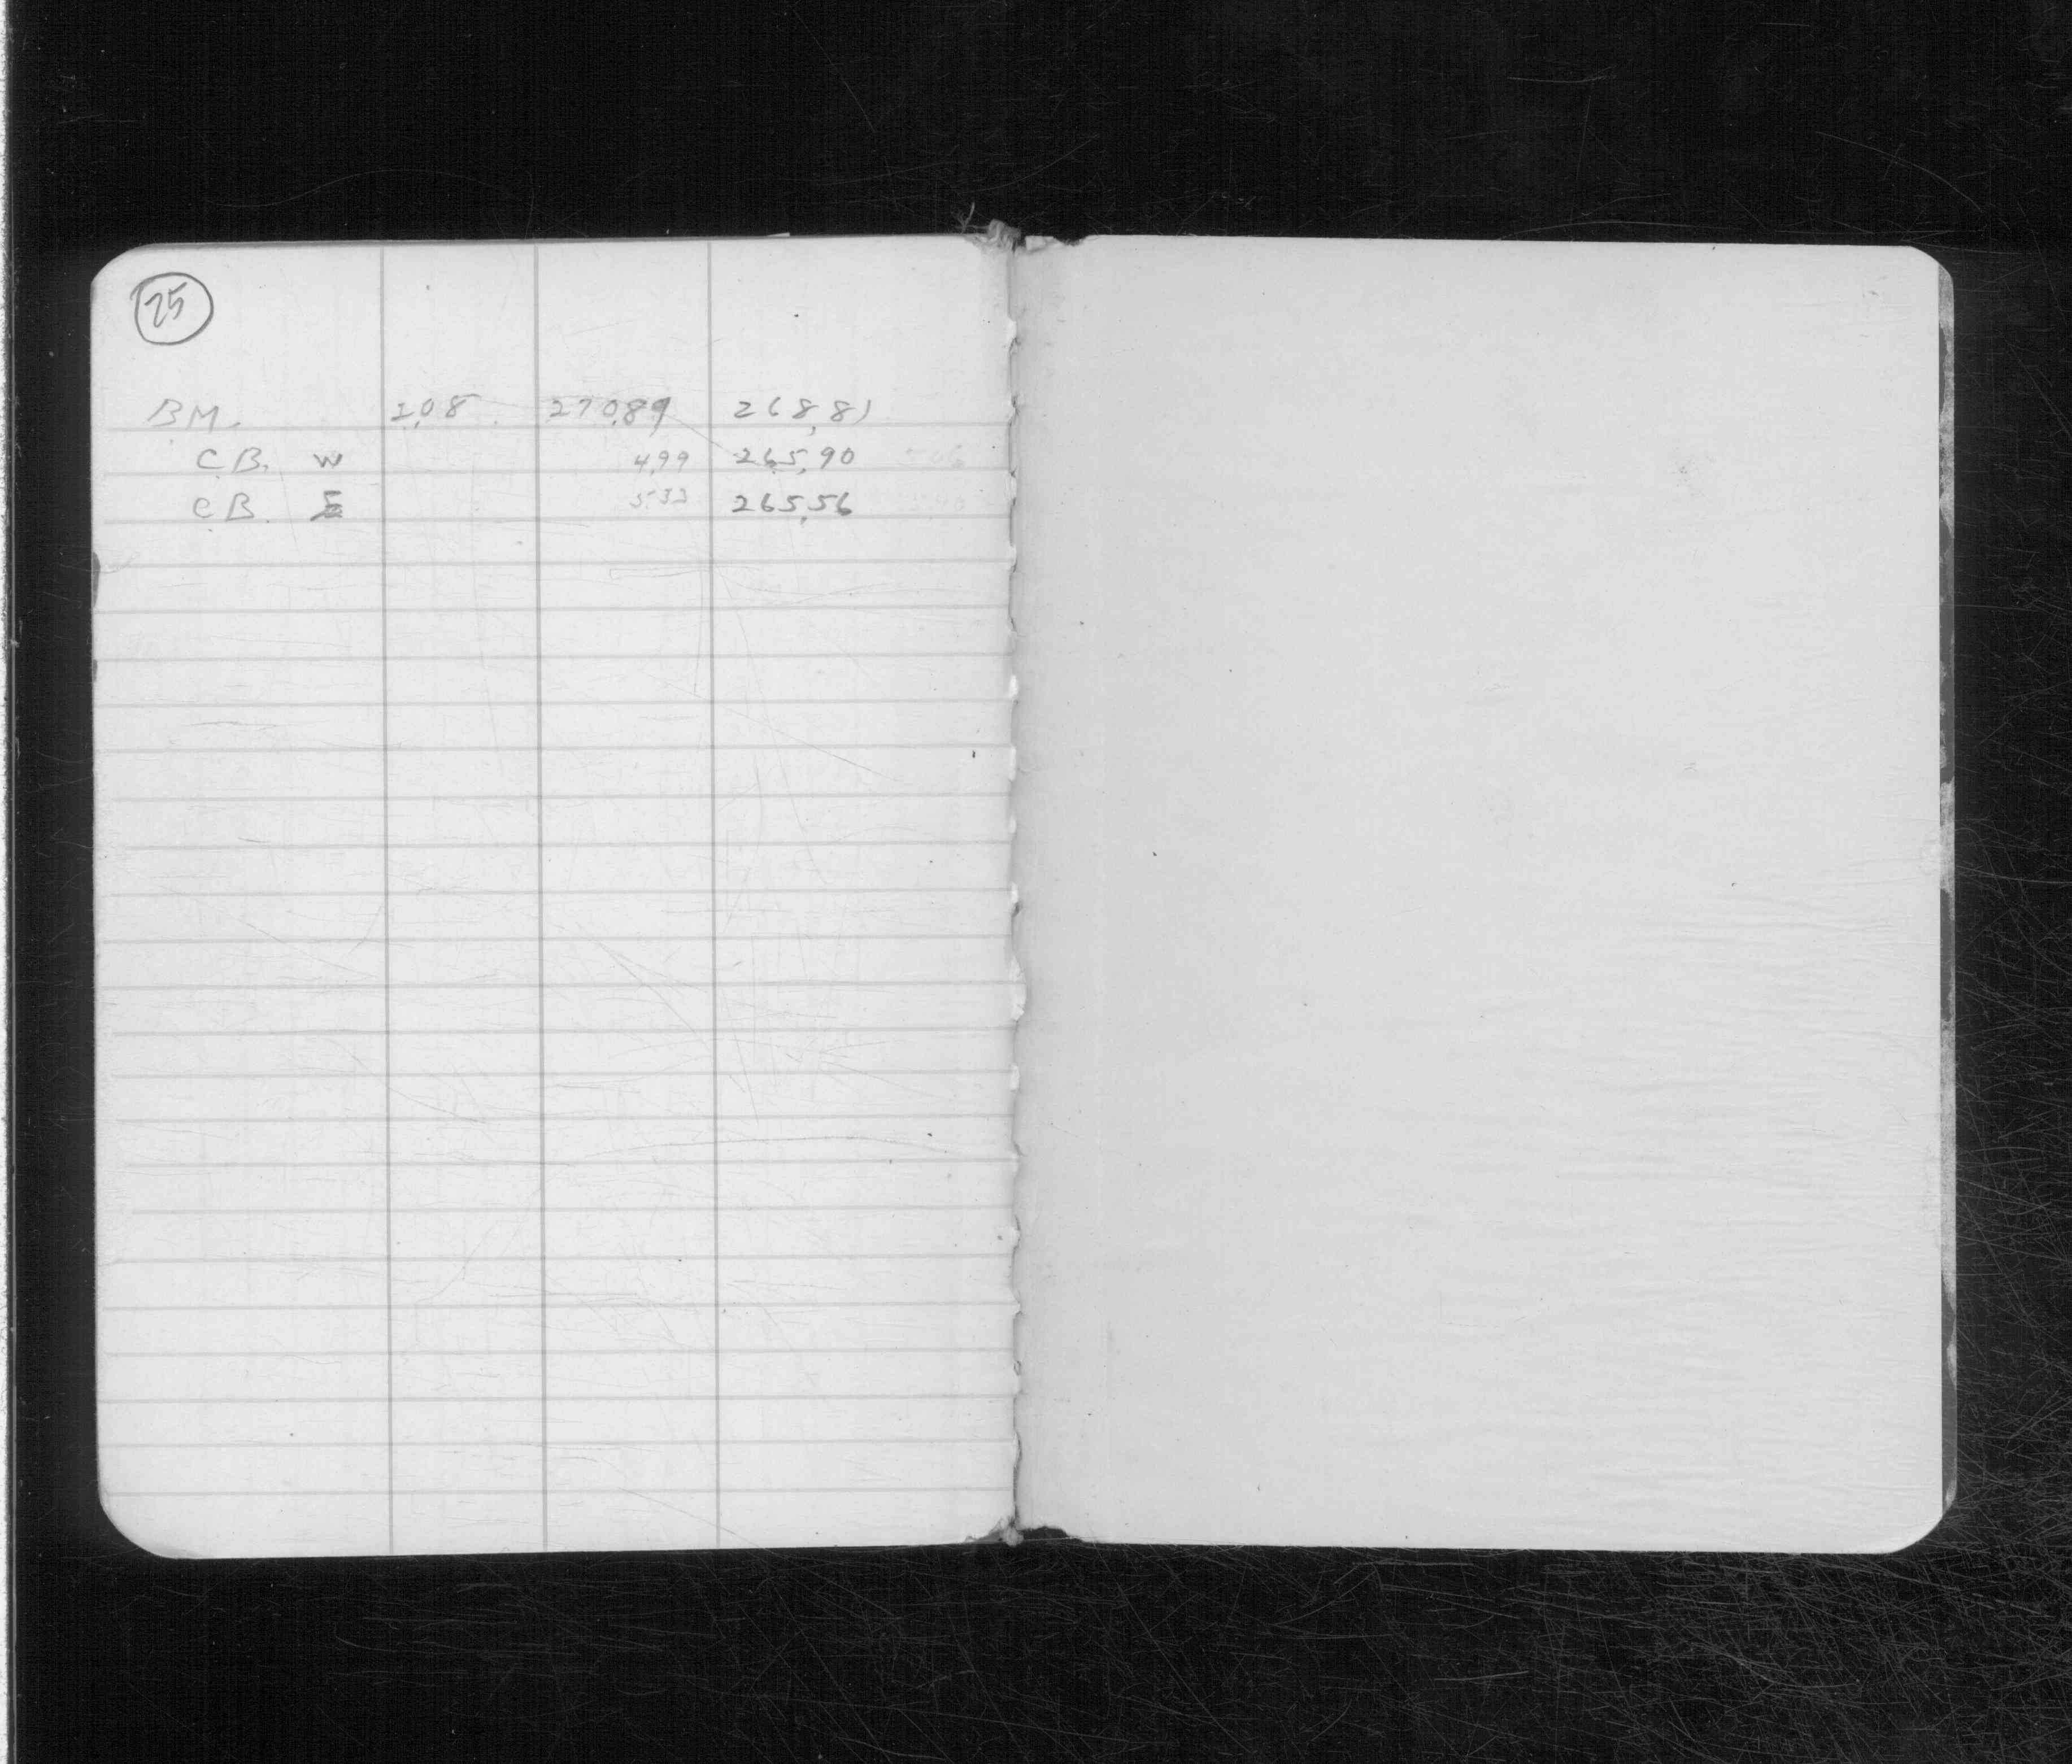 25
BM. 2.08 270.89 268.81
C.B. W 4.99 265.90
C.B. E 5.33 265.56